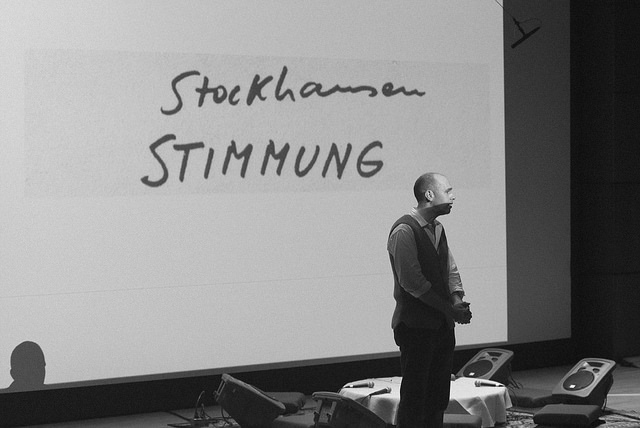 Stockhausen
STIMMUNG